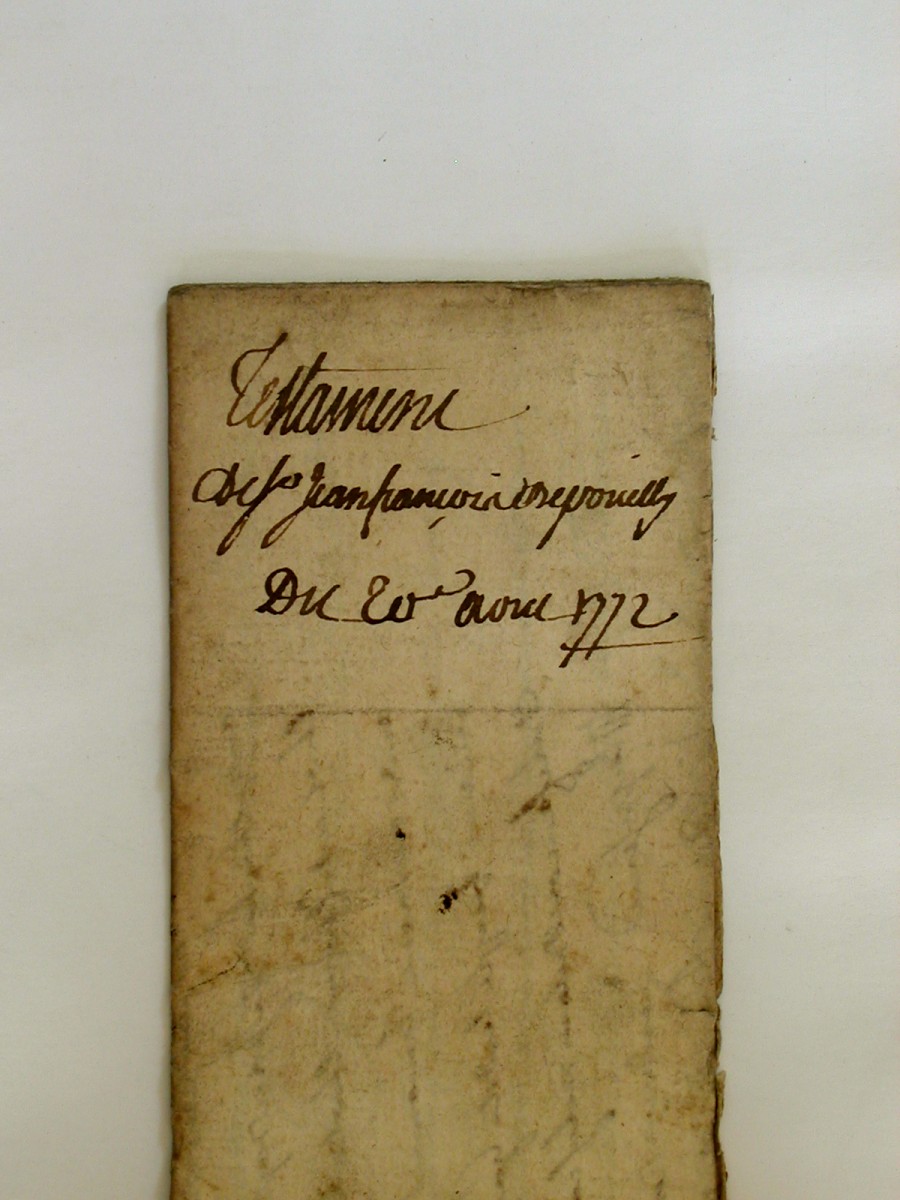 Testament
De Sr Jean françois Drepouilly
Du 20e avril 1772